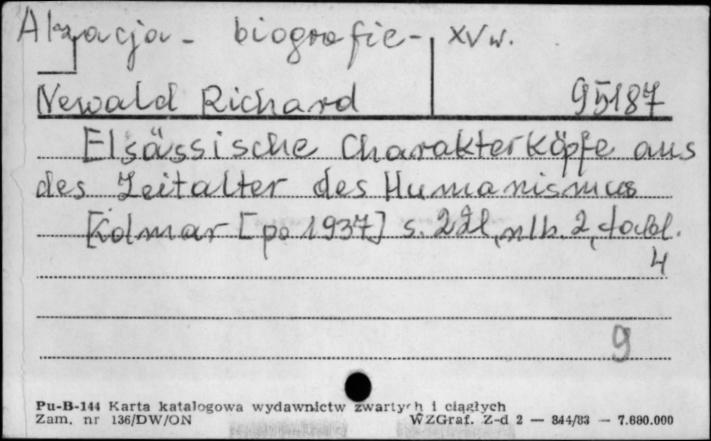 Alzacja - biografie - XV w.
Newald Richard 95187
Elsässische Charakterköpfe aus
des Zeitalter des Humanismus
Kolmar [po 1937] s. 221, nlb. 2, tabl.
4
9
Pu-B-144 Karta katalogowa wydawnictw zwartych i ciągłych
Zam. nr 136/DW/ON WZGraf. Z-d 2 — 844/83 — 7.680.000